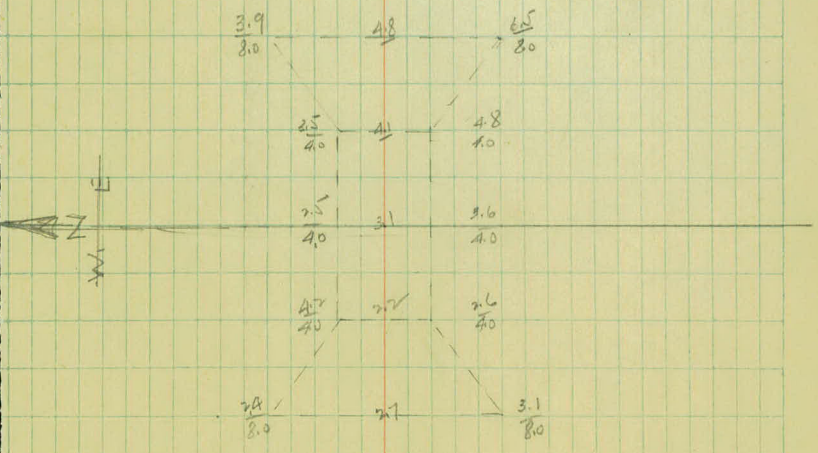 3.9/8.0 4.8 6.5/8.0
2.5/4.0 4.1 4.8/4.0
E
N 2.5/4.0 3.1 3.6/4.0
W
4.2/4.0 2.2 2.6/4.0
2.4/8.0 2.7 3.1/8.0